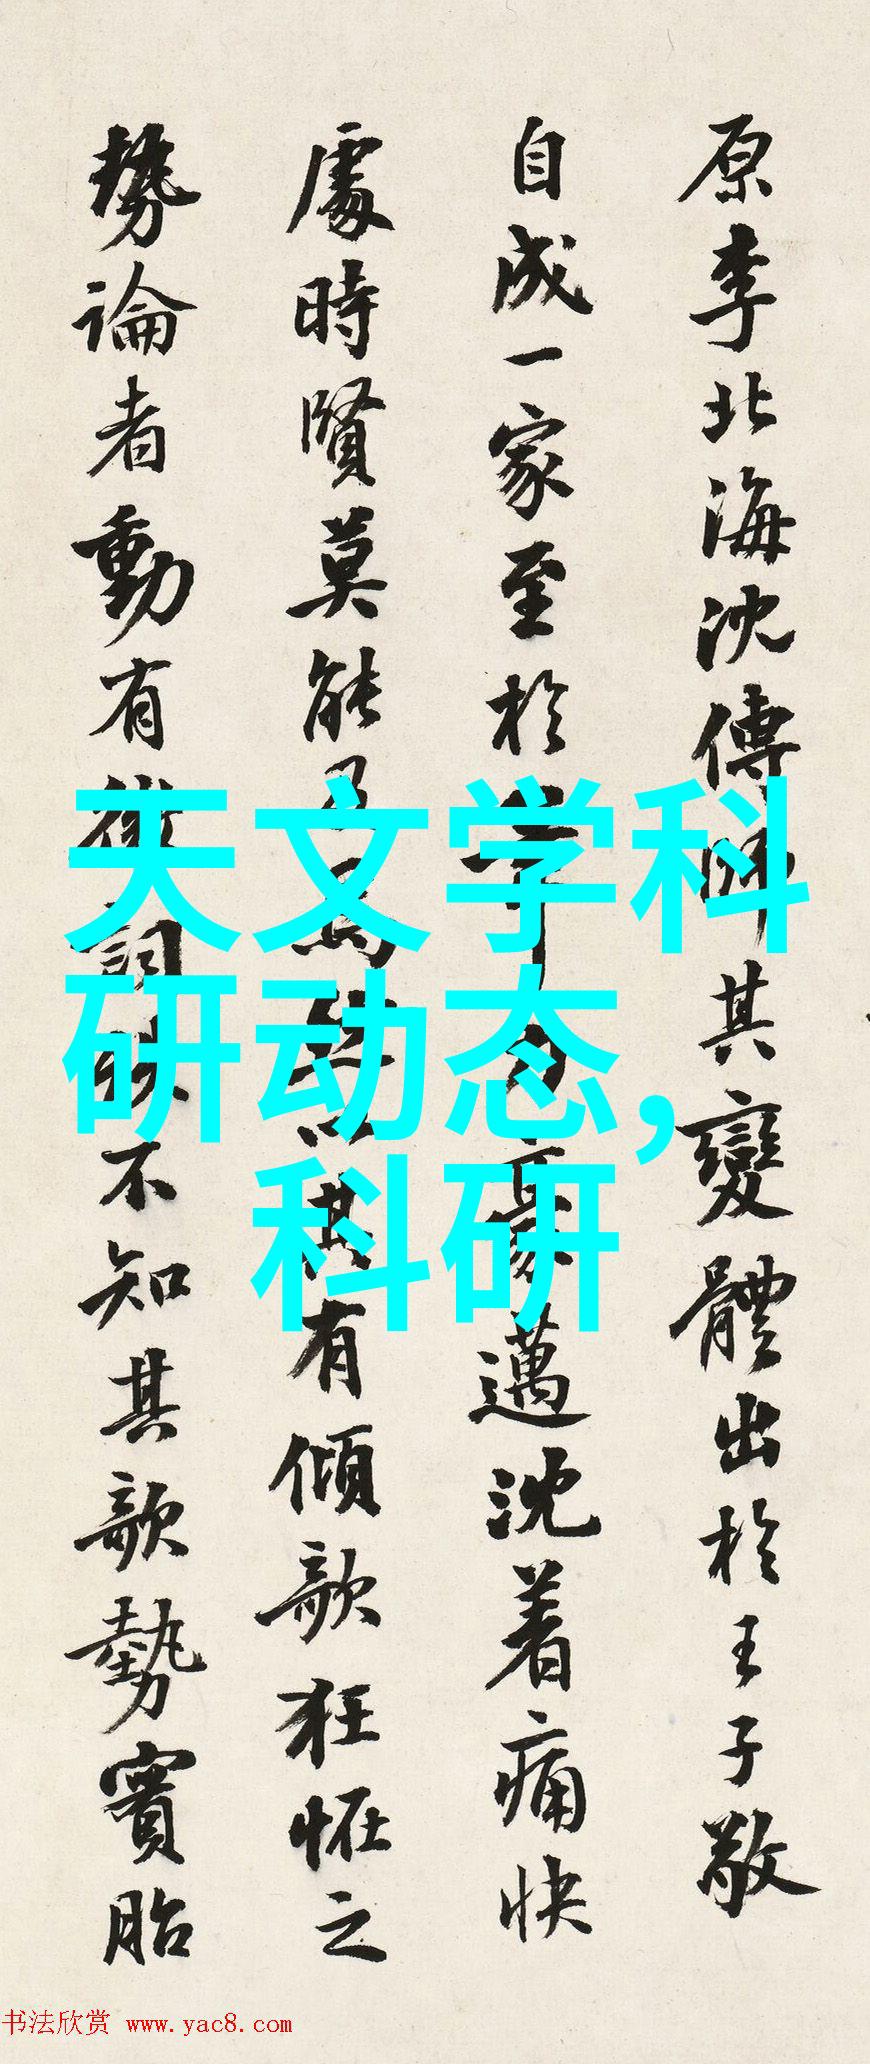 原李北海沈傳師其變體出於王子敬
自成一家至於豪邁沈着痛快
處時賢莫能有傾欹狂怪之
勢論者動有不知其欹勢實胎
天文学科
研动态,
科研
书法欣赏 www.yac8.com